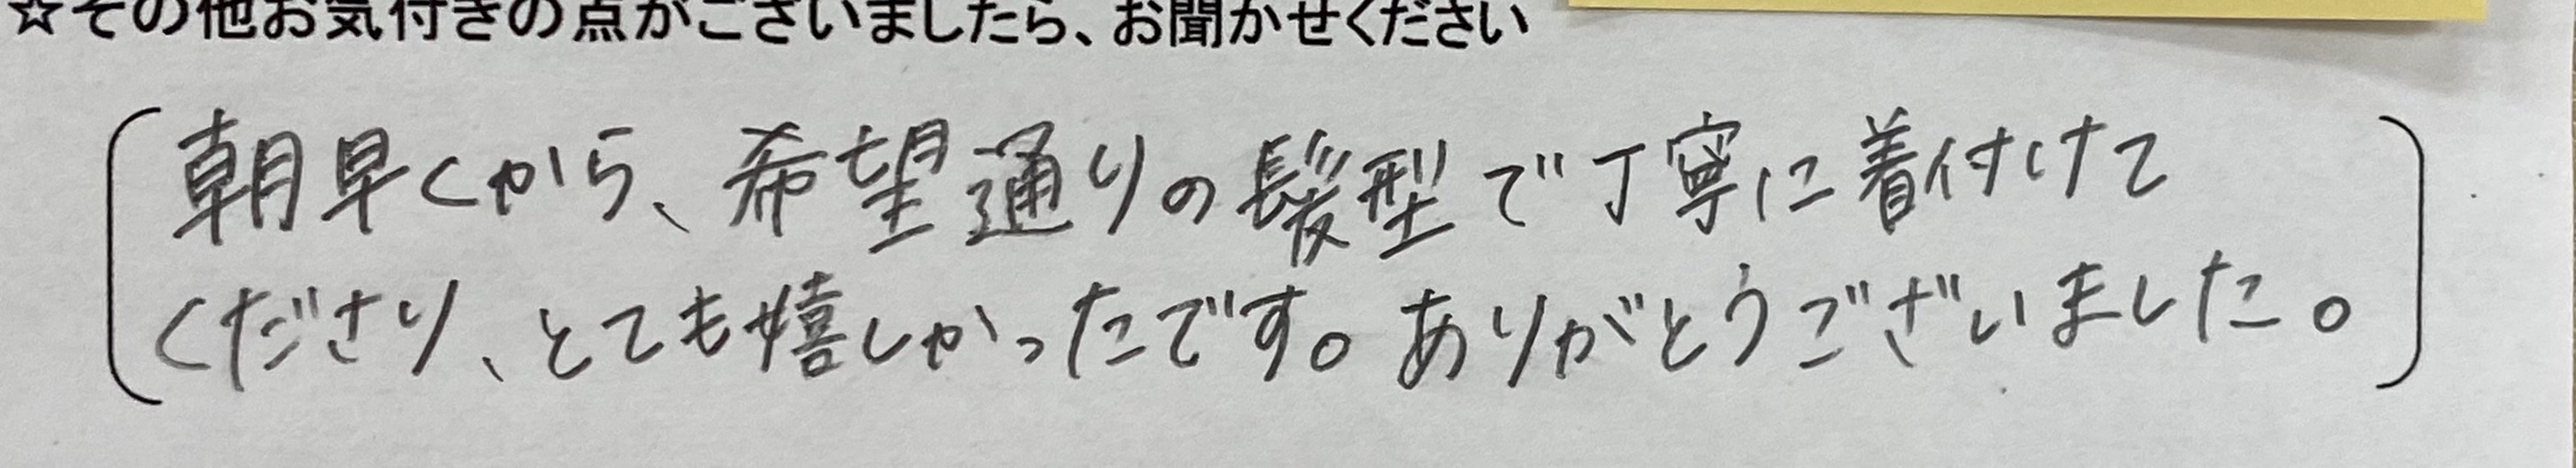 ☆その他お気付きの点がございましたら、お聞かせください
朝早くから、希望通りの髪型で丁寧に着付けて
くださり、とても嬉しかったです。ありがとうございました。